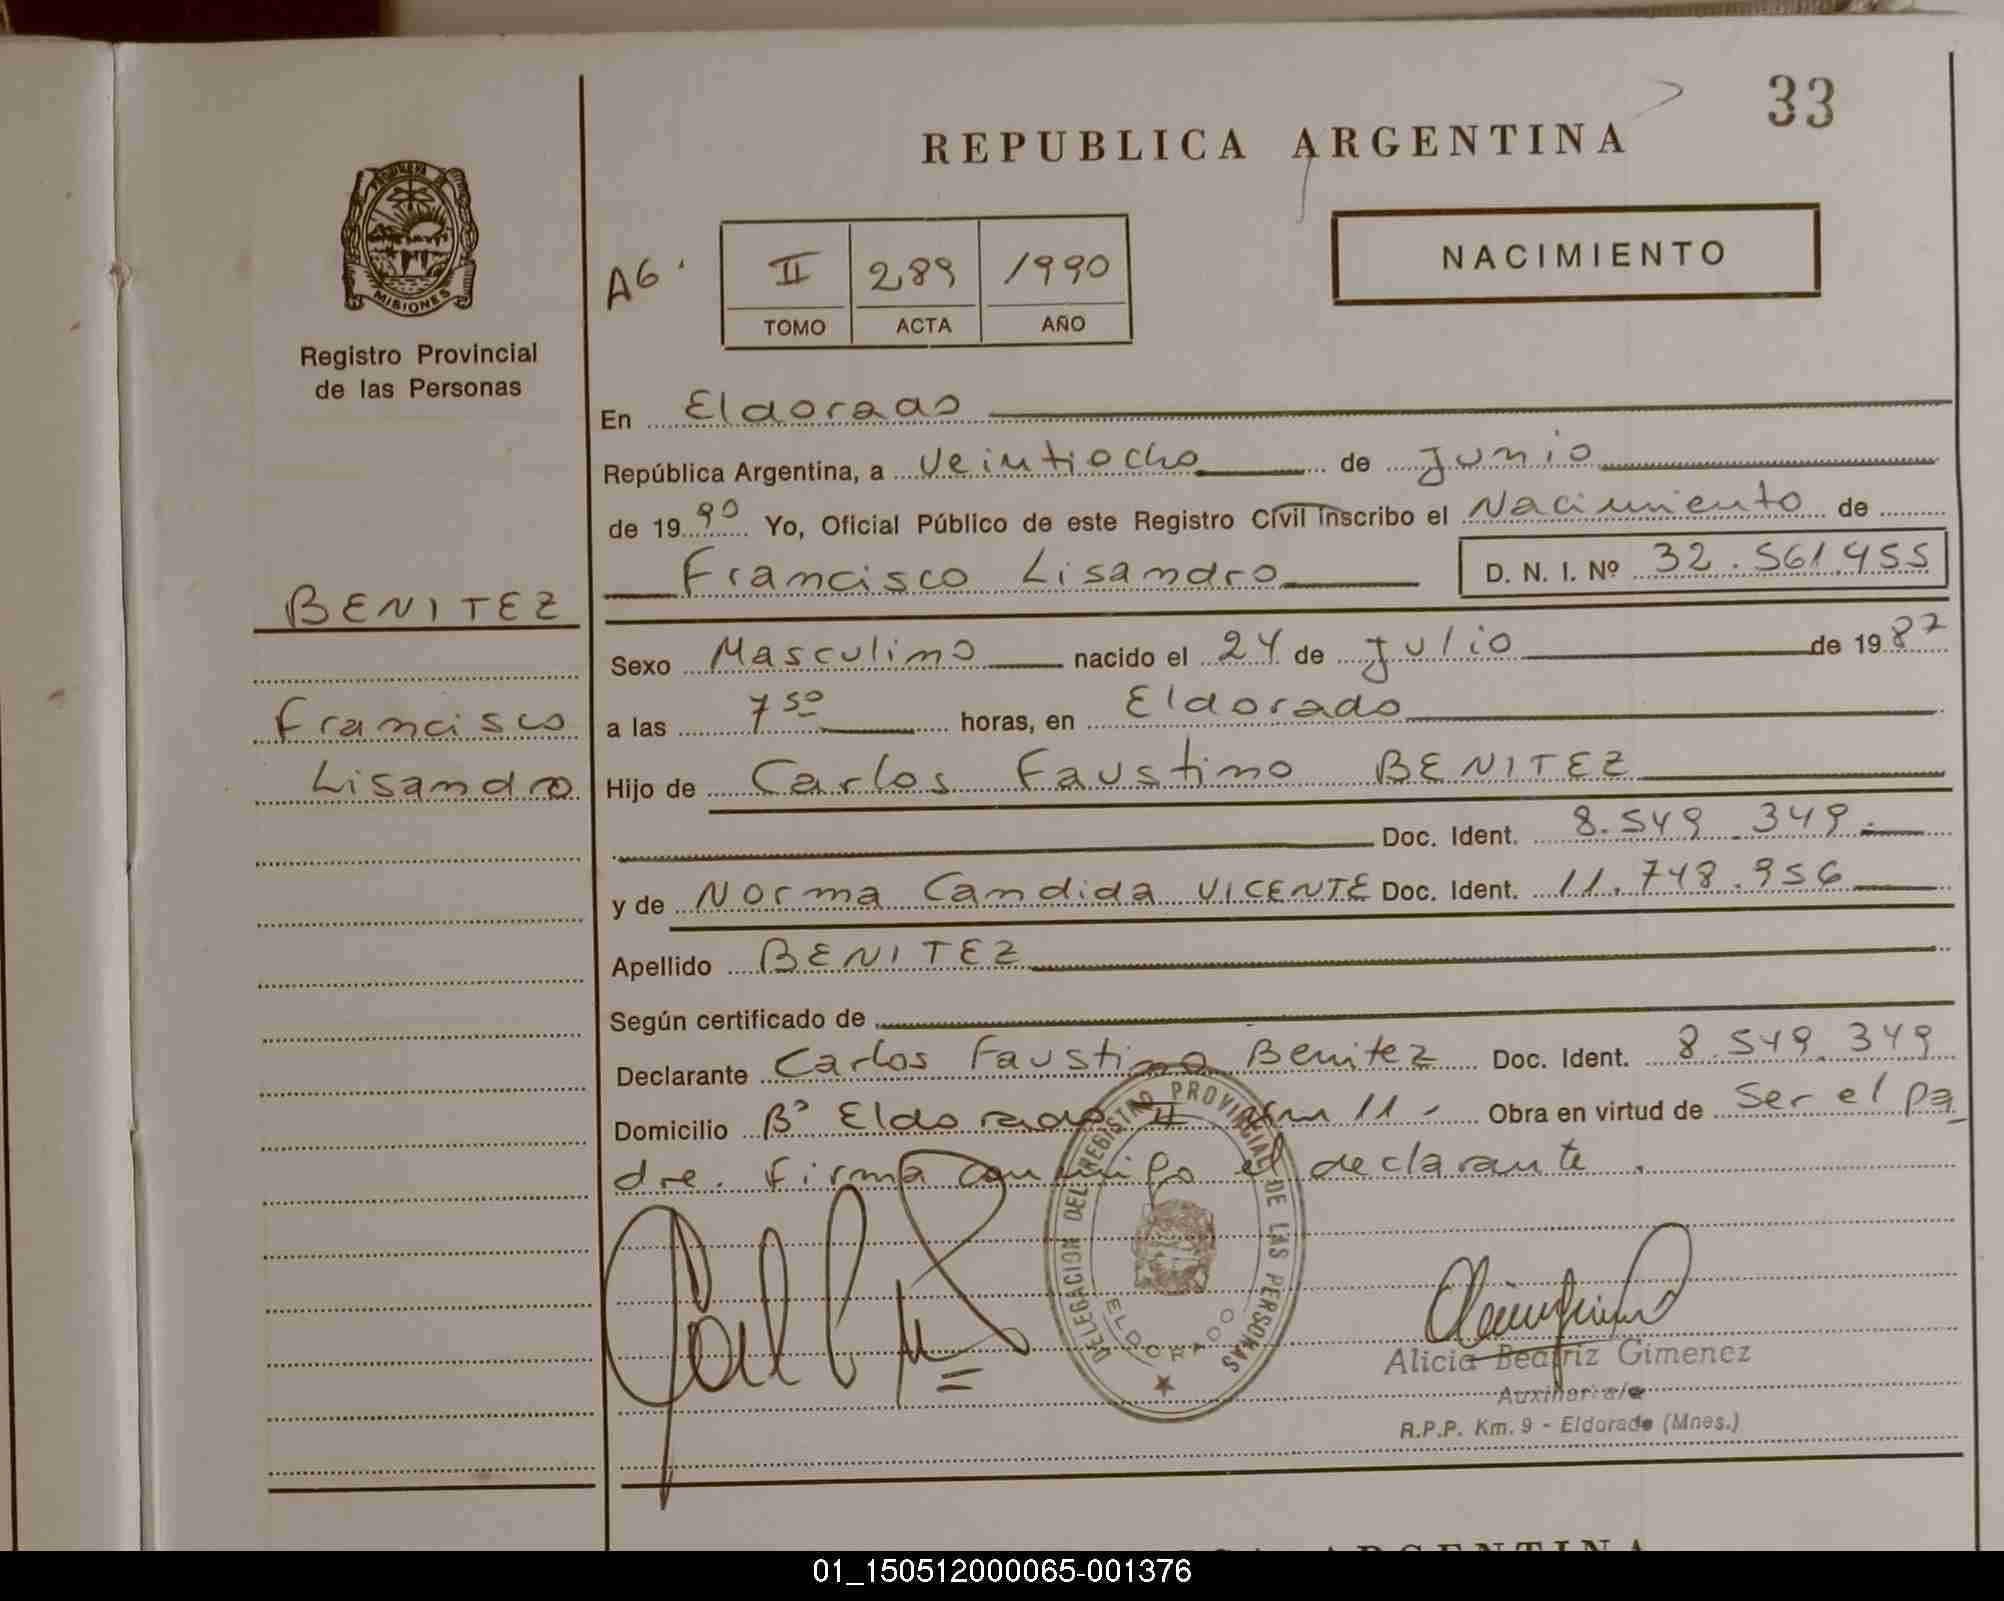 33
REPUBLICA ARGENTINA
NACIMIENTO
PROVINCIA DE
MISIONES
Registro Provincial
de las Personas
A6
II 289 1990
TOMO ACTA AÑO
En Eldorado
República Argentina, a veintiocho de junio
de 1990 Yo, Oficial Público de este Registro Civil inscribo el Nacimiento de
Francisco Lisandro D. N. I. Nº 32.561.455
BENITEZ
Francisco
Lisandro
Sexo Masculino nacido el 24 de julio de 1987
a las 7 50 horas, en Eldorado
Hijo de Carlos Faustino BENITEZ
Doc. Ident. 8.549.349.
y de Norma Candida VICENTE Doc. Ident. 11.748.956
Apellido BENITEZ
Según certificado de
Declarante Carlos Faustino Benitez Doc. Ident. 8.549.349
Domicilio Bº Eldorado II Km 11 - Obra en virtud de ser el pa
dre. Firma conmigo el declarante.
DELEGACION DEL REGISTRO PROVINCIAL DE LAS PERSONAS
ELDORADO
Alicia Beatriz Gimenez
Auxiliar a/c
R.P.P. Km. 9 - Eldorado (Mnes.)
01_150512000065-001376